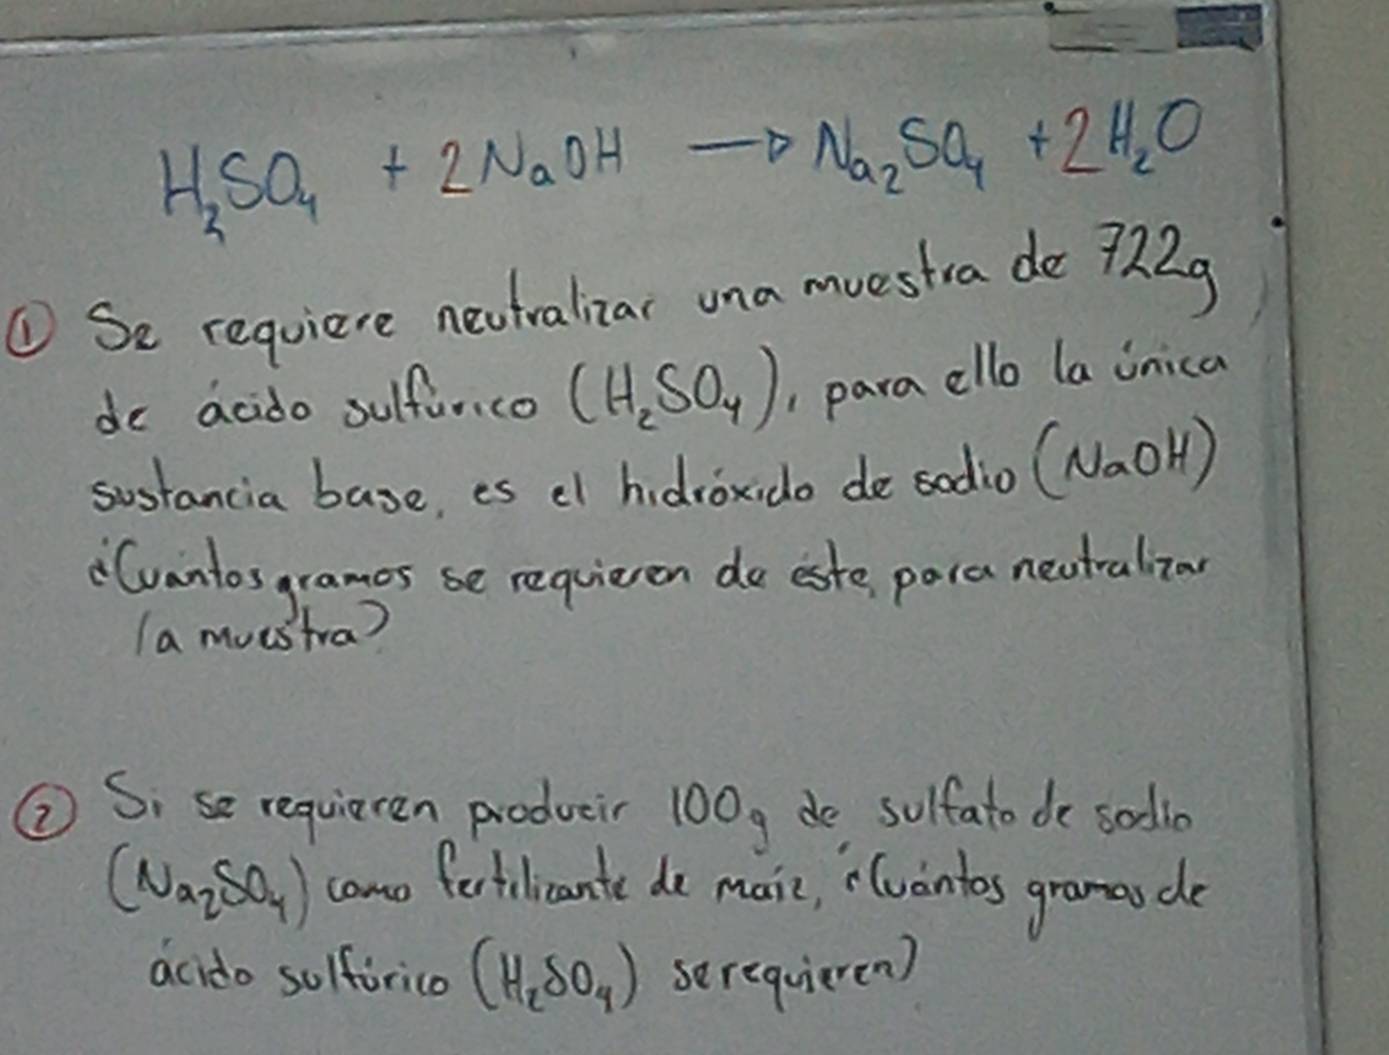 H₂SO₄ + 2NaOH → Na₂SO₄ + 2H₂O
① Se requiere neutralizar una muestra de 722g
de ácido sulfúrico (H₂SO₄), para ello la única
sustancia base, es el hidróxido de sodio (NaOH)
¿Cuántos gramos se requieren de éste, para neutralizar
la muestra?
② Si se requieren producir 100g de sulfato de sodio
(Na₂SO₄) como fertilizante de maíz, ¿Cuántos gramos de
ácido sulfúrico (H₂SO₄) se requieren?